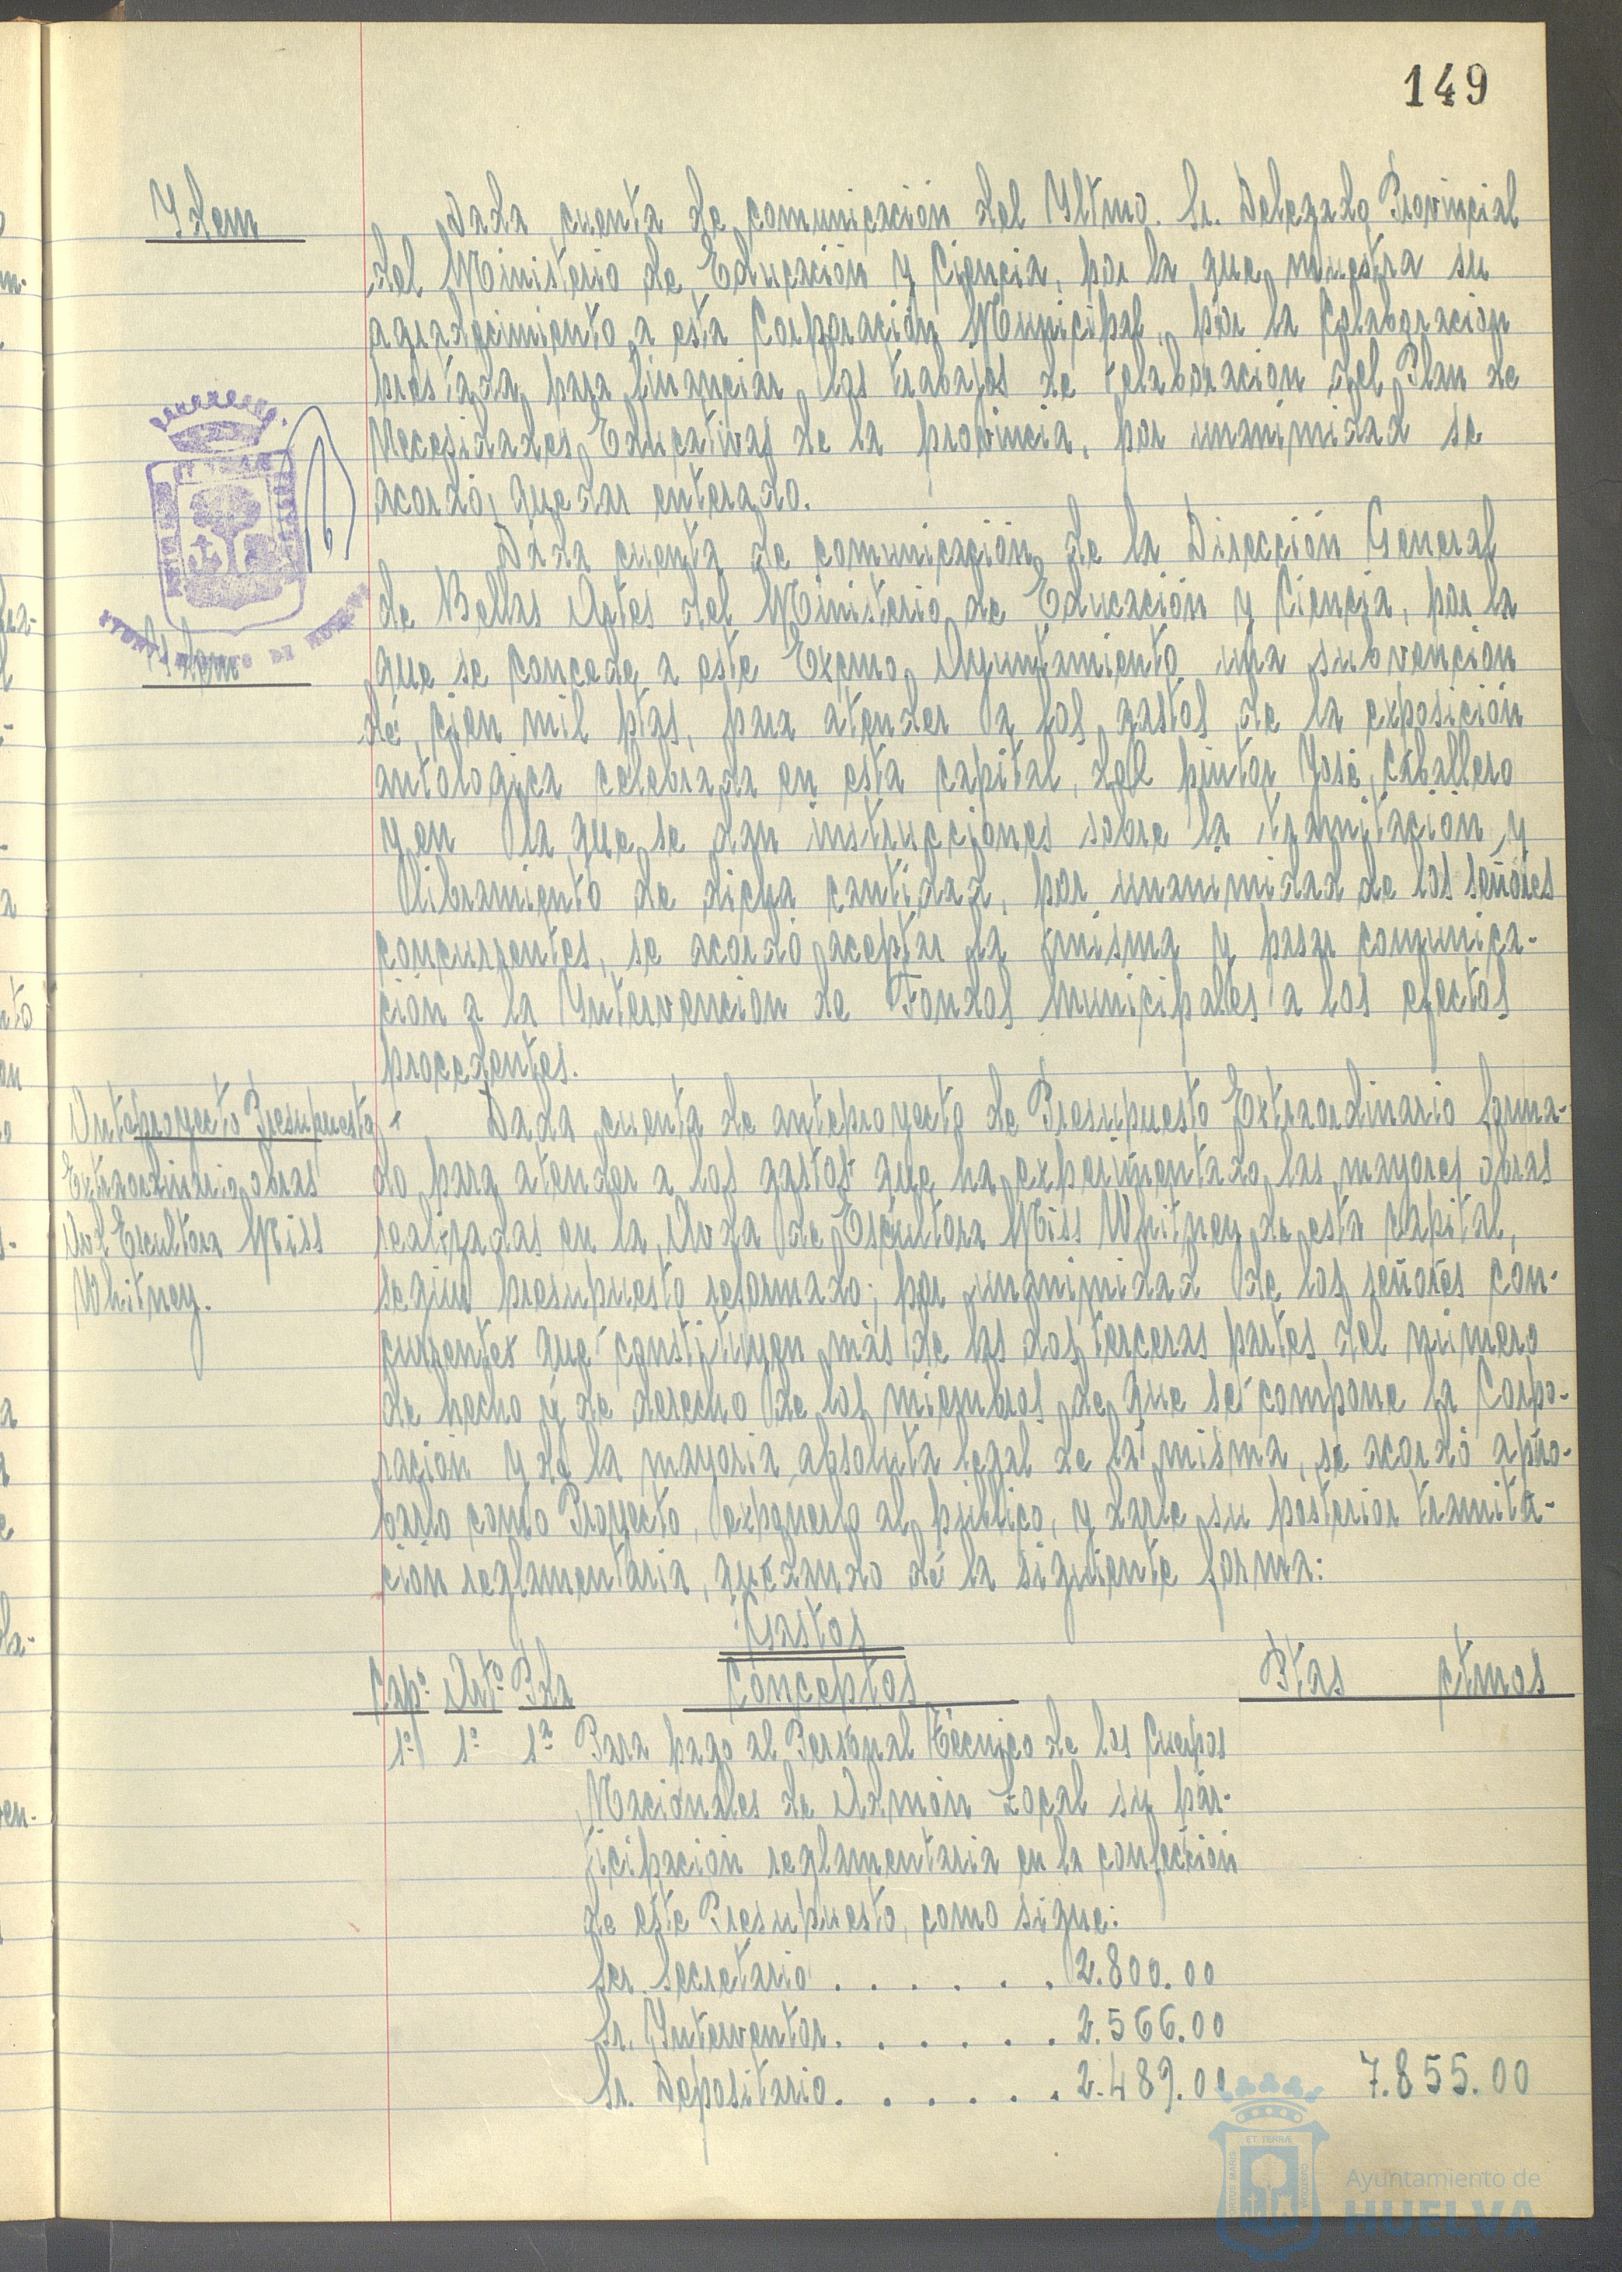 149
Ydem
Dada cuenta de comunicación del Yltmo. Sr. Delegado Provincial
del Ministerio de Educación y Ciencia, por la que muestra su
agradecimiento a esta Corporación Municipal, por la Colaboración
prestada para financiar los trabajos de elaboración del Plan de
Necesidades Educativas de la provincia, por unanimidad se
acordó, quedar enterado.
Ydem
Dada cuenta de comunicación de la Dirección General
de Bellas Artes del Ministerio de Educación y Ciencia, por la
que se concede a este Excmo. Ayuntamiento una subvención
de cien mil ptas, para atender a los gastos de la exposición
antologica celebrada en esta capital, del pintor José Caballero
y en la que se dan instrucciones sobre la tramitación y
libramiento de dicha cantidad, por unanimidad de los señores
concurrentes, se acordó aceptar la misma y pasar comunica-
ción a la Yntervención de Fondos Municipales a los efectos
procedentes.
Anteproyecto Presupuesto
Extraordinario obras
Avd Escultora Miss
Whitney.
- Dada cuenta de anteproyecto de Presupuesto Extraordinario forma-
do para atender a los gastos que ha experimentado las mayores obras
realizadas en la Avda de Escultora Miss Whitney de esta capital,
según presupuesto reformado; por unanimidad de los señores con-
currentes que constituyen más de las dos terceras partes del número
de hecho y de derecho de los miembros de que se compone la Corpo-
ración y de la mayoria absoluta legal de la misma, se acordó apro-
barlo como Proyecto, exponerlo al público, y darle su posterior tramita-
ción reglamentaria, quedando de la siguiente forma:
Gastos
Capº Artº Pda Conceptos Ptas ctmos
1º 1º 1ª Para pago al Personal Técnico de los Cuerpos
Nacionales de Admón Local su par-
ticipación reglamentaria en la confección
de este Presupuesto, como sigue:
Ser. Secretario . . . . . . 2.800.00
Sr. Ynterventor. . . . . . 2.566.00
Sr. Depositario. . . . . . 2.489.00 7.855.00
Ayuntamiento de
HUELVA